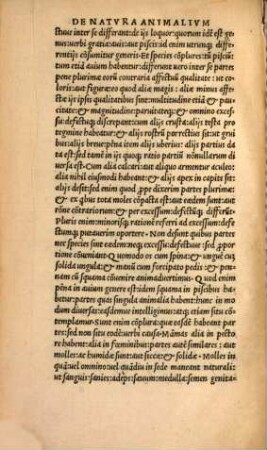 DE NATVRA ANIMALIVM
ctuus inter se differant: de ijs loquor: quorum idē est ge
nus: uerbi gratia: auis: aut piscis: id enim utrunq; diffe=
rentijs cōfunitur generis: Et species cōplures tū pisciū:
tum etiā auium habentur: differunt uero inter se partes
pene plurimæ eorū contraria affectuū qualitate: ut co
loris: aut figuræ: eo quod aliæ magis: aliæ minus affe=
ctæ ijs ipsis qualitatibus sint: multitudine etiā & pau=
citate: & magnitudine: paruitateq;: & omnino exces=
su: defectuq; discrepant: sunt enim alijs crustā: alijs testā pro
tegmine habeātur: & alijs rostrū porrectius sit: ut gru
ibus: alijs breue: pēna item alijs uberius: alijs partius da
ta est: sed tamē in ijs quoq; ratio partiū nōnullarum di
uersa est: Cum alia calcari: aut aliquo armentur aculeo:
alia nihil eiusmodi habeant: & alijs apex in capite sit:
alijs desit: sed omni quod, ꝓpe dixerim partes plurimæ:
& ex q̄bus tota moles cōpacta est: aut eædem sunt: aut
rōne cōtrariorum: & per excessū: defectūq; differūt:
Pluris enim: minorisq; rationē referri ad excessum: de=
fectumq; putauerim oportere. Non desunt quibus partes
nec species sint eædem: neq; excessu: defectuue: sed, ꝓpor
tione cōueniant: Quomodo os cum spina: & unguē cū
solida ungula: & manum cum forcipato pedis: & cum
pēna squamā cōuenire animaduertimus: Quod enim
pēna in auium genere est: idem squama in piscibus ha
bētur: partes quas singula animalia habent: hunc in mo
dum diuersas: easdemue intelligimus: atq; sitū etiā con
templamur: Sunt enim cōplura: quæ easdē habent par
tes: sed non situ eodē: uerbi causa: Māmas alia in pecto
re habent: alia in fœminibus: partes autē similares: aut
molles: ac humidæ sunt: aut siccæ: & solidæ. Molles in
quā: uel omnino: uel quādiu in sede manent naturali: ut
sanguis: sanies: adeps: sæuum: medulla: semen genita=